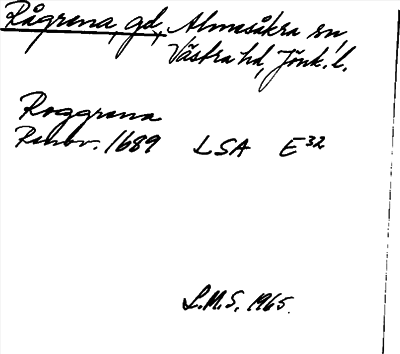 Rågrena, gd, Almesåkra sn,
Västra hd, Jönk. l.
Roggrena
Renov. 1689 LSA E32
L.M.S. 1965.